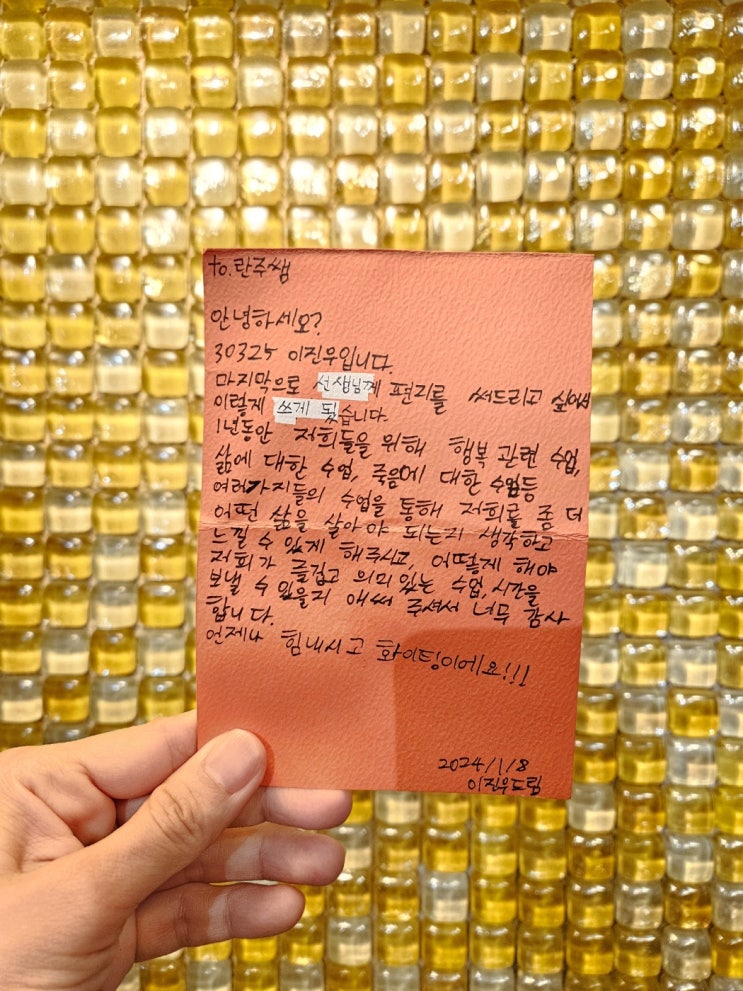 to.란주쌤
안녕하세요?
30325 이진우입니다.
마지막으로 선생님께 편지를 써드리고 싶어서
이렇게 쓰게 됬습니다.
1년동안 저희들을 위해 행복 관련 수업,
삶에 대한 수업, 죽음에 대한 수업등
여러가지들의 수업을 통해 저희를 좀 더
어떤 삶을 살아야 되는지 생각하고
느낄 수 있게 해주시고, 어떻게 해야
저희가 즐겁고 의미있는 수업,시간을
보낼 수 있을지 애써 주셔서 너무 감사
합니다.
언제나 힘내시고 화이팅이에요!!!
2024/1/8
이진우드림